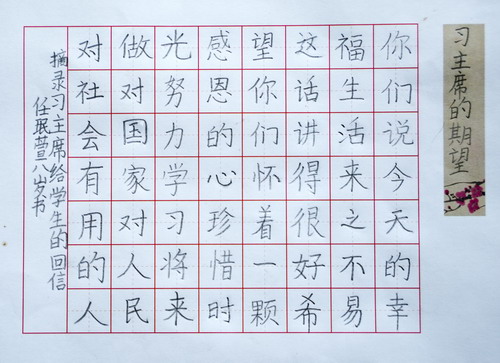 习主席的期望
你们说今天的幸
福生活来之不易
这话讲得很好希
望你们怀着一颗
感恩的心珍惜时
光努力学习将来
做对国家对人民
对社会有用的人
摘录习主席给学生的回信
任珉萱八岁书